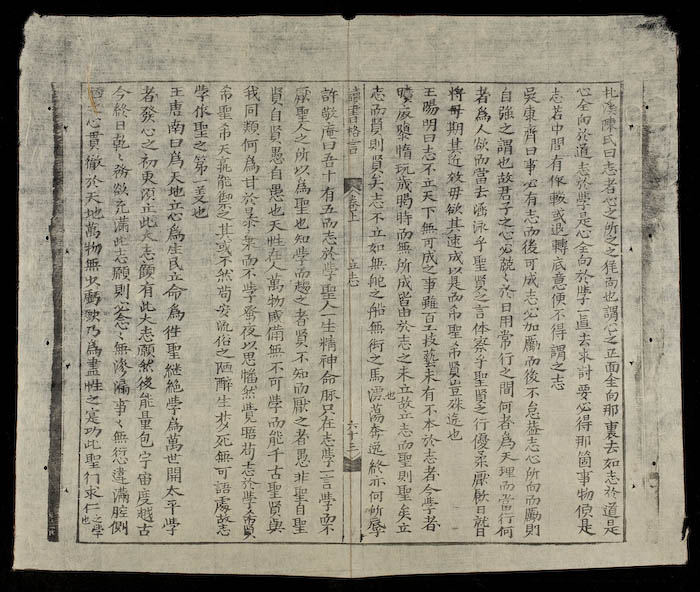 北溪陳氏曰志者心之所之之猶向也謂心之正面全向那裏去如志於道是
心全向於道志於學是心全向於學一直去求討要必得那箇事物便是
志若中間有作輟或退轉底意便不得謂之志
吳東齊曰事必有志而後可成志必加勵而後不怠蓋志心所向而勵則
自強之謂也故君子之心必兢〻於日用常行之間何者為天理而當行何
者為人欲而當去涵泳乎聖賢之言体察乎聖賢之行優柔厭飫日就日
將毋期其近效毋欲其速成以是而希聖希賢豈殊途也
王陽明曰志不立天下無可成之事雖百工技藝未有不本於志者今學者
曠廢隳惰玩歲愒時而無所成皆由於志之未立故立志而聖則聖矣立
志而賢則賢矣志不立如無舵之船無銜之馬漂蕩奔逸終亦何所底
也
讀書格言
卷上
立志
六十三
許敬庵曰吾十有五而志於學聖人一生精神命脉只在志學一言學而不
厭聖人之所以為聖也知學而趨之者賢不知而厭之者愚非聖自聖
賢自賢愚自愚也天性在人萬物咸備無不可學而能千古聖賢與
我同類何為甘於暴棄而不學夙夜以思惕然覺寤苟志於學希賢
希聖希天孰能禦之其或不然苟安流俗之陋醉生梦死無可語處故志
學作聖之第一義也
王唐南曰為天地立心為生民立命為徃聖継絶學為萬世開太平學
者發心之初東須正此大志願有此大志願然後能量包宇宙度越古
今終日乾〻務欲充滿此志願則必念〻無滲漏事〻無愆違滿腔惻
隱之心貫徹於天地萬物無少虧歉乃為盡性之寔功此聖行求仁之學
也